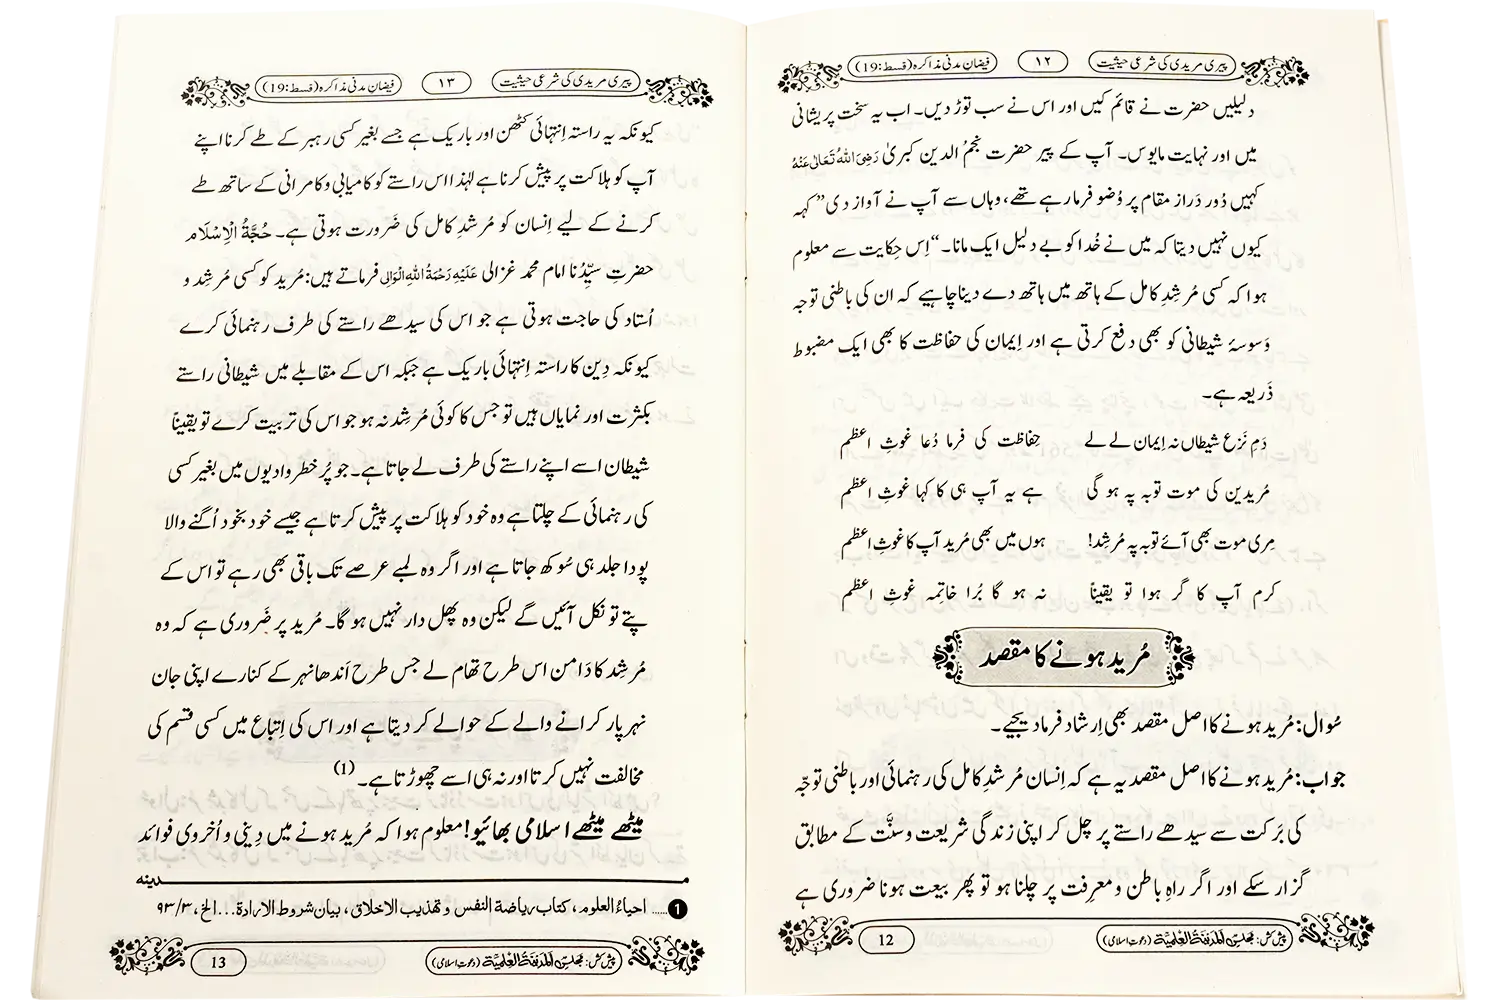 پیری مریدی کی شرعی حیثیت ۱۲ فیضان مدنی مذاکرہ (قسط:19)
دلیلیں حضرت نے قائم کیں اور اس نے سب توڑ دیں۔ اب یہ سخت پریشانی
میں اور نہایت مایوس۔ آپ کے پیر حضرت نجمُ الدین کبریٰ رَضِیَ اللہُ تَعَالٰی عَنْہُ
کہیں دُور دَراز مقام پر وُضو فرما رہے تھے، وہاں سے آپ نے آواز دی ”کہہ
کیوں نہیں دیتا کہ میں نے خُدا کو بے دلیل ایک مانا۔“ اِس حِکایت سے معلوم
ہوا کہ کسی مُرشدِ کامل کے ہاتھ میں ہاتھ دے دینا چاہیے کہ ان کی باطنی توجہ
وَسوسۂ شیطانی کو بھی دفع کرتی ہے اور اِیمان کی حفاظت کا بھی ایک مضبوط
ذَریعہ ہے۔
دَمِ نَزع شیطاں نہ اِیمان لے لے حفاظت کی فرما دُعا غوثِ اعظم
مُریدین کی موت توبہ پہ ہو گی ہے یہ آپ ہی کا کہا غوثِ اعظم
مِری موت بھی آئے توبہ پہ مُرشِد! ہوں میں بھی مُرید آپ کا غوثِ اعظم
کرم آپ کا گر ہوا تو یقیناً نہ ہو گا بُرا خاتِمہ غوثِ اعظم
مُرید ہونے کا مقصد
سُوال: مُرید ہونے کا اصل مقصد بھی اِرشاد فرما دیجیے۔
جواب: مُرید ہونے کا اصل مقصد یہ ہے کہ اِنسان مُرشدِ کامل کی رہنمائی اور باطنی توجّہ
کی بَرکت سے سیدھے راستے پر چل کر اپنی زندگی شریعت و سنَّت کے مطابق
گزار سکے اور اگر راہِ باطن و معرِفت پر چلنا ہو تو پھر بیعت ہونا ضروری ہے
پیش کش: مجلس المدینۃ العلمیۃ (دعوت اسلامی) 12
پیری مریدی کی شرعی حیثیت ۱۳ فیضان مدنی مذاکرہ (قسط:19)
کیونکہ یہ راستہ اِنتہائی کٹھن اور باریک ہے جسے بغیر کسی رہبر کے طے کرنا اپنے
آپ کو ہلاکت پر پیش کرنا ہے لہٰذا اس راستے کو کامیابی و کامرانی کے ساتھ طے
کرنے کے لیے اِنسان کو مُرشدِ کامل کی ضَرورت ہوتی ہے۔ حُجَّۃُ الْاِسْلَام
حضرتِ سیِّدُنا امام محمد غزالی عَلَیْہِ رَحْمَۃُ اللہِ الْوَالِی فرماتے ہیں: مُرید کو کسی مُرشِد و
اُستاد کی حاجت ہوتی ہے جو اس کی سیدھے راستے کی طرف رہنمائی کرے
کیونکہ دِین کا راستہ اِنتہائی باریک ہے جبکہ اس کے مقابلے میں شیطانی راستے
بکثرت اور نمایاں ہیں تو جس کا کوئی مُرشِد نہ ہو جو اس کی تربیت کرے تو یقیناً
شیطان اسے اپنے راستے کی طرف لے جاتا ہے۔ جو پُر خطر وادیوں میں بغیر کسی
کی رہنمائی کے چلتا ہے وہ خود کو ہلاکت پر پیش کرتا ہے جیسے خود بخود اُگنے والا
پودا جلد ہی سُوکھ جاتا ہے اور اگر وہ لمبے عرصے تک باقی بھی رہے تو اس کے
پتے تو نکل آئیں گے لیکن وہ پھل دار نہیں ہو گا۔ مُرید پر ضَروری ہے کہ وہ
مُرشِد کا دَامن اس طرح تھام لے جس طرح اَندھا نہر کے کنارے اپنی جان
نہر پار کرانے والے کے حوالے کر دیتا ہے اور اس کی اِتباع میں کسی قسم کی
مخالفت نہیں کرتا اور نہ ہی اسے چھوڑتا ہے۔ (1)
میٹھے میٹھے اسلامی بھائیو! معلوم ہوا کہ مُرید ہونے میں دِینی و اُخروی فوائد
مـدینہ
1 ..... احیاءُ العلوم، کتاب ریاضة النفس و تهذیب الاخلاق، بیان شروط الارادة...الخ، ۹۳/۳
پیش کش: مجلس المدینۃ العلمیۃ (دعوت اسلامی) 13